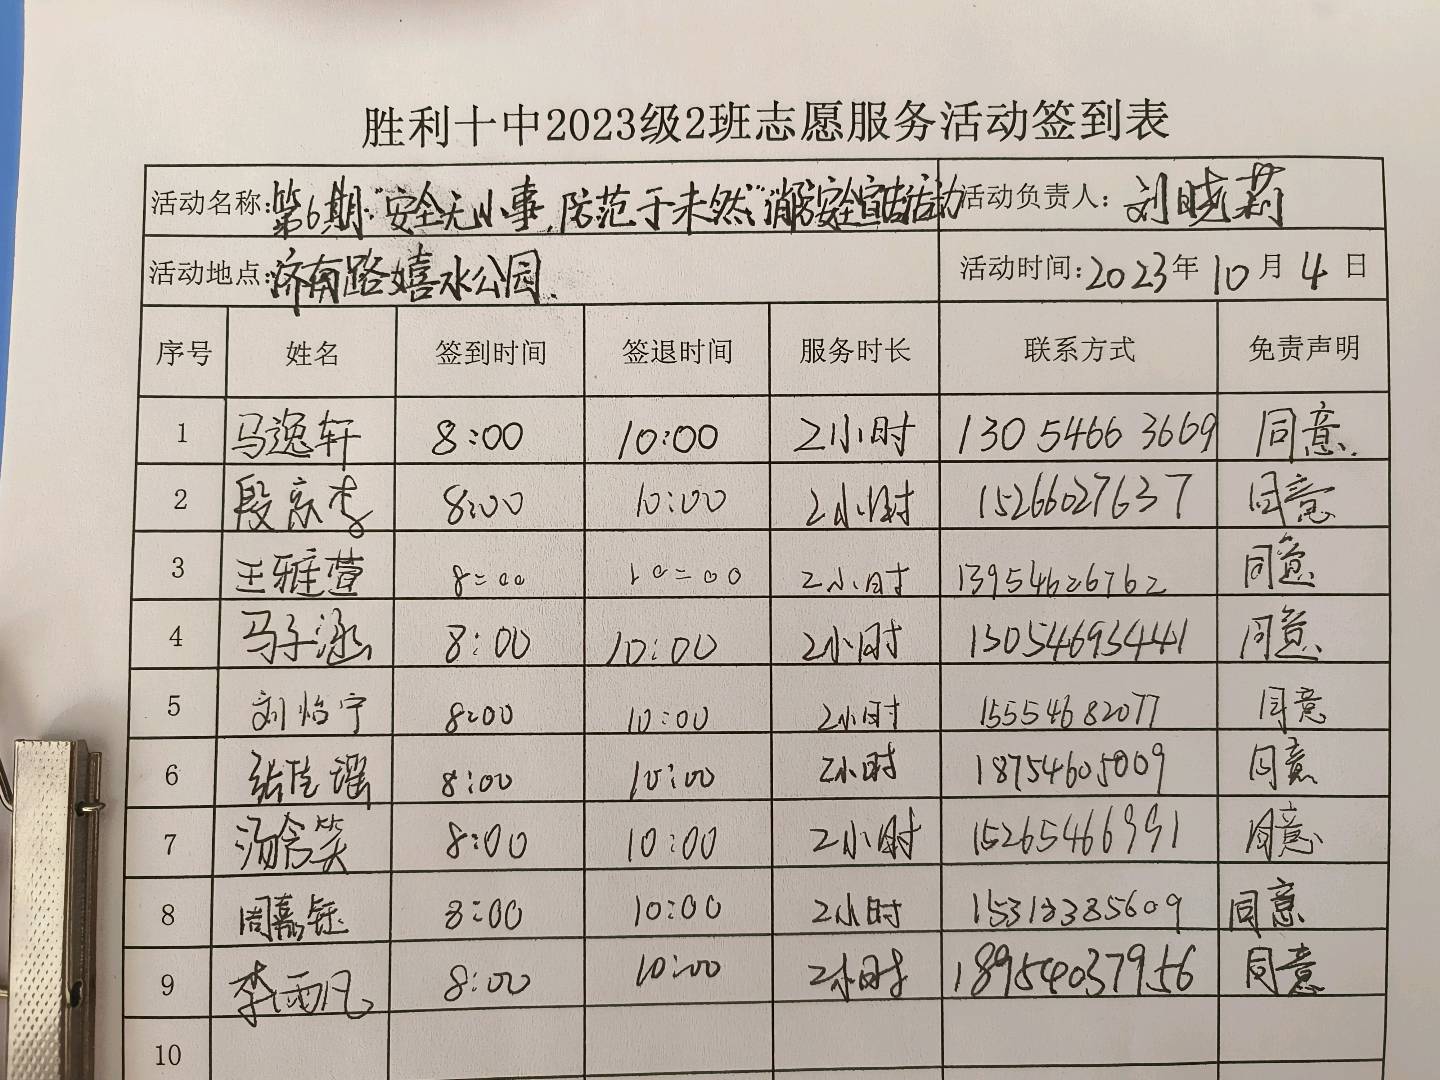 胜利十中2023级2班志愿服务活动签到表
活动名称: 第6期"安全无小事,防范于未然"消防安全宣传活动 活动负责人: 刘晓莉
活动地点: 济南路嬉水公园. 活动时间: 2023年10月4日
序号 姓名 签到时间 签退时间 服务时长 联系方式 免责声明
1 马逸轩 8:00 10:00 2小时 130 5466 3669 同意.
2 段京李 8:00 10:00 2小时 15266027637 同意
3 王雅萱 8:00 10:00 2小时 13954626762 同意
4 马子涵 8:00 10:00 2小时 13054693441 同意
5 刘怡宁 8:00 10:00 2小时 15554682077 同意
6 张佳瑶 8:00 10:00 2小时 18754605009 同意
7 汤含笑 8:00 10:00 2小时 15265466991 同意
8 周嘉钰 8:00 10:00 2小时 15313385609 同意
9 李雨凡 8:00 10:00 2小时 18954037956 同意
10